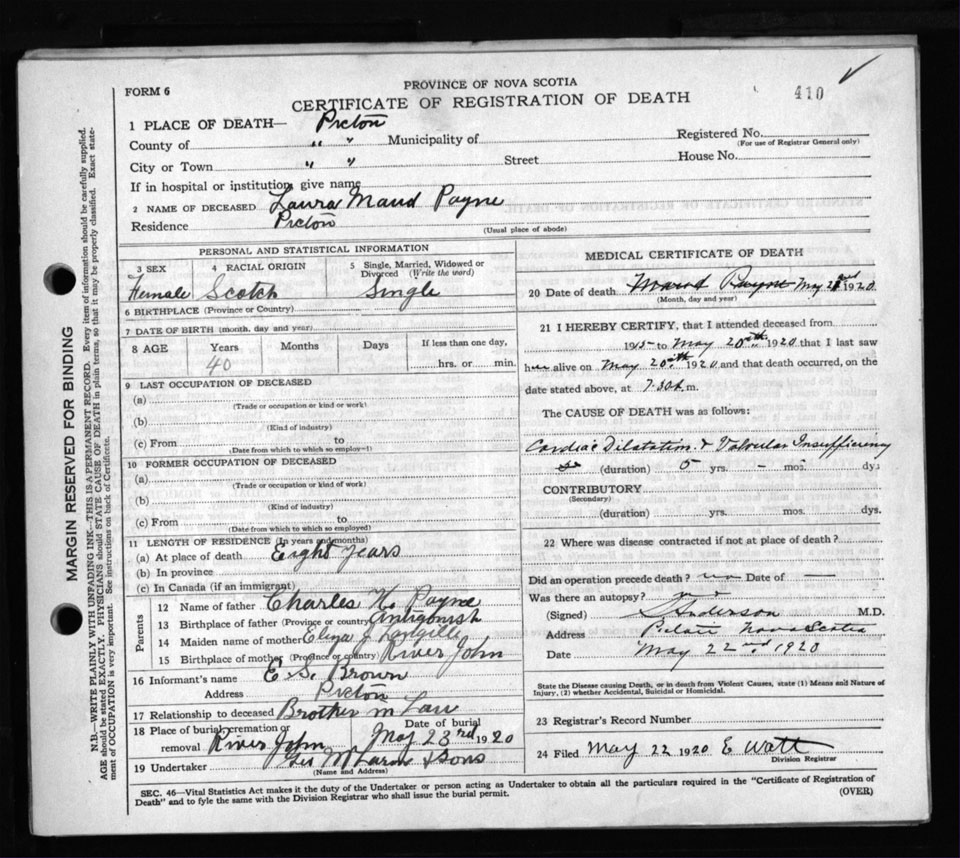 PROVINCE OF NOVA SCOTIA
FORM 6
CERTIFICATE OF REGISTRATION OF DEATH
410
1 PLACE OF DEATH— Pictou
County of " " Municipality of Registered No.
(For use of Registrar General only)
City or Town " " Street House No.
If in hospital or institution, give name
2 NAME OF DECEASED Laura Maud Payne
Residence Pictou
(Usual place of abode)
PERSONAL AND STATISTICAL INFORMATION
3 SEX 4 RACIAL ORIGIN 5 Single, Married, Widowed or Divorced (Write the word)
Female Scotch Single
6 BIRTHPLACE (Province or Country)
7 DATE OF BIRTH (month, day and year)
8 AGE Years Months Days If less than one day,
40 hrs. or min.
9 LAST OCCUPATION OF DECEASED
(a)
(Trade or occupation or kind or work)
(b)
(Kind of industry)
(c) From to
(Date from which to which so employed)
10 FORMER OCCUPATION OF DECEASED
(a)
(Trade or occupation or kind of work)
(b)
(Kind of industry)
(c) From to
(Date from which to which so employed)
11 LENGTH OF RESIDENCE (In years and months)
(a) At place of death Eight years
(b) In province
(c) In Canada (if an immigrant)
Parents
12 Name of father Charles H. Payne
13 Birthplace of father (Province or country) Antigonish
14 Maiden name of mother Eliza J Langille
15 Birthplace of mother (Province or country) River John
16 Informant's name E. S. Brown
Address Pictou
17 Relationship to deceased Brother in Law
18 Place of burial, cremation or removal River John Date of burial May 23rd 1920
19 Undertaker Geo McLaren & Sons
(Name and Address)
MEDICAL CERTIFICATE OF DEATH
20 Date of death Maud Payne May 1920
(Month, day and year)
21 I HEREBY CERTIFY, that I attended deceased from
1915 to May 20th 1920 that I last saw
her alive on May 20th 1920 and that death occurred, on the
date stated above, at 7.30 m.
The CAUSE OF DEATH was as follows:
Cardiac Dilatation & Valvular Insufficiency
(duration) 5 yrs. - mos. dys.
CONTRIBUTORY
(Secondary)
(duration) yrs. mos. dys.
22 Where was disease contracted if not at place of death?
Did an operation precede death? no Date of —
Was there an autopsy?
(Signed) Anderson M.D.
Address Pictou Nova Scotia
Date May 22nd 1920
State the Disease causing Death, or in death from Violent Causes, state (1) Means and Nature of
Injury, (2) whether Accidental, Suicidal or Homicidal.
23 Registrar's Record Number
24 Filed May 22 1920 E Watt
Division Registrar
SEC. 46—Vital Statistics Act makes it the duty of the Undertaker or person acting as Undertaker to obtain all the particulars required in the "Certificate of Registration of
Death" and to fyle the same with the Division Registrar who shall issue the burial permit.
(OVER)
MARGIN RESERVED FOR BINDING
N.B.—WRITE PLAINLY WITH UNFADING INK—THIS IS A PERMANENT RECORD. Every item of information should be carefully supplied.
AGE should be stated EXACTLY. PHYSICIANS should STATE CAUSE OF DEATH in plain terms, so that it may be properly classified. Exact state-
ment of OCCUPATION is very important. See instructions on back of Certificate.